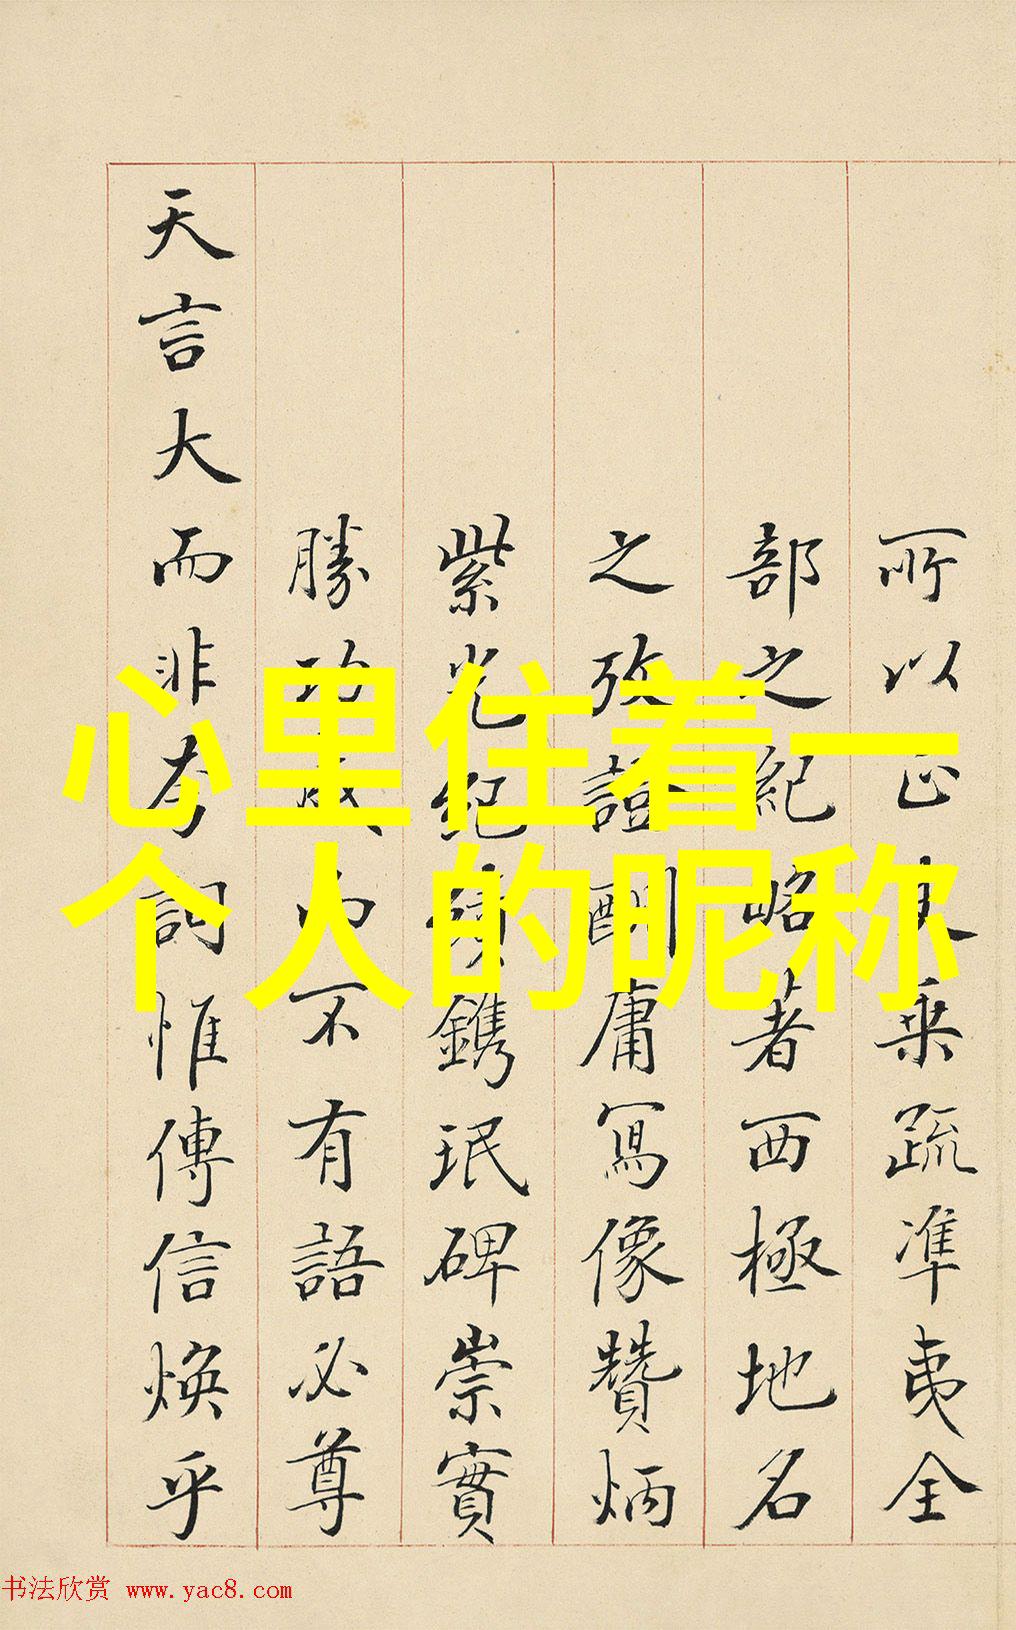 所以正東乗疏準夷全
部之紀略著西極地名
之攷證酬庸寫像贊炳
紫光紀績鐫珉碑崇實
勝功成而不有語必尊
天言大而非夸詞惟傳信煥乎
心里住着一
个人的昵称
书法欣赏 www.yac8.com